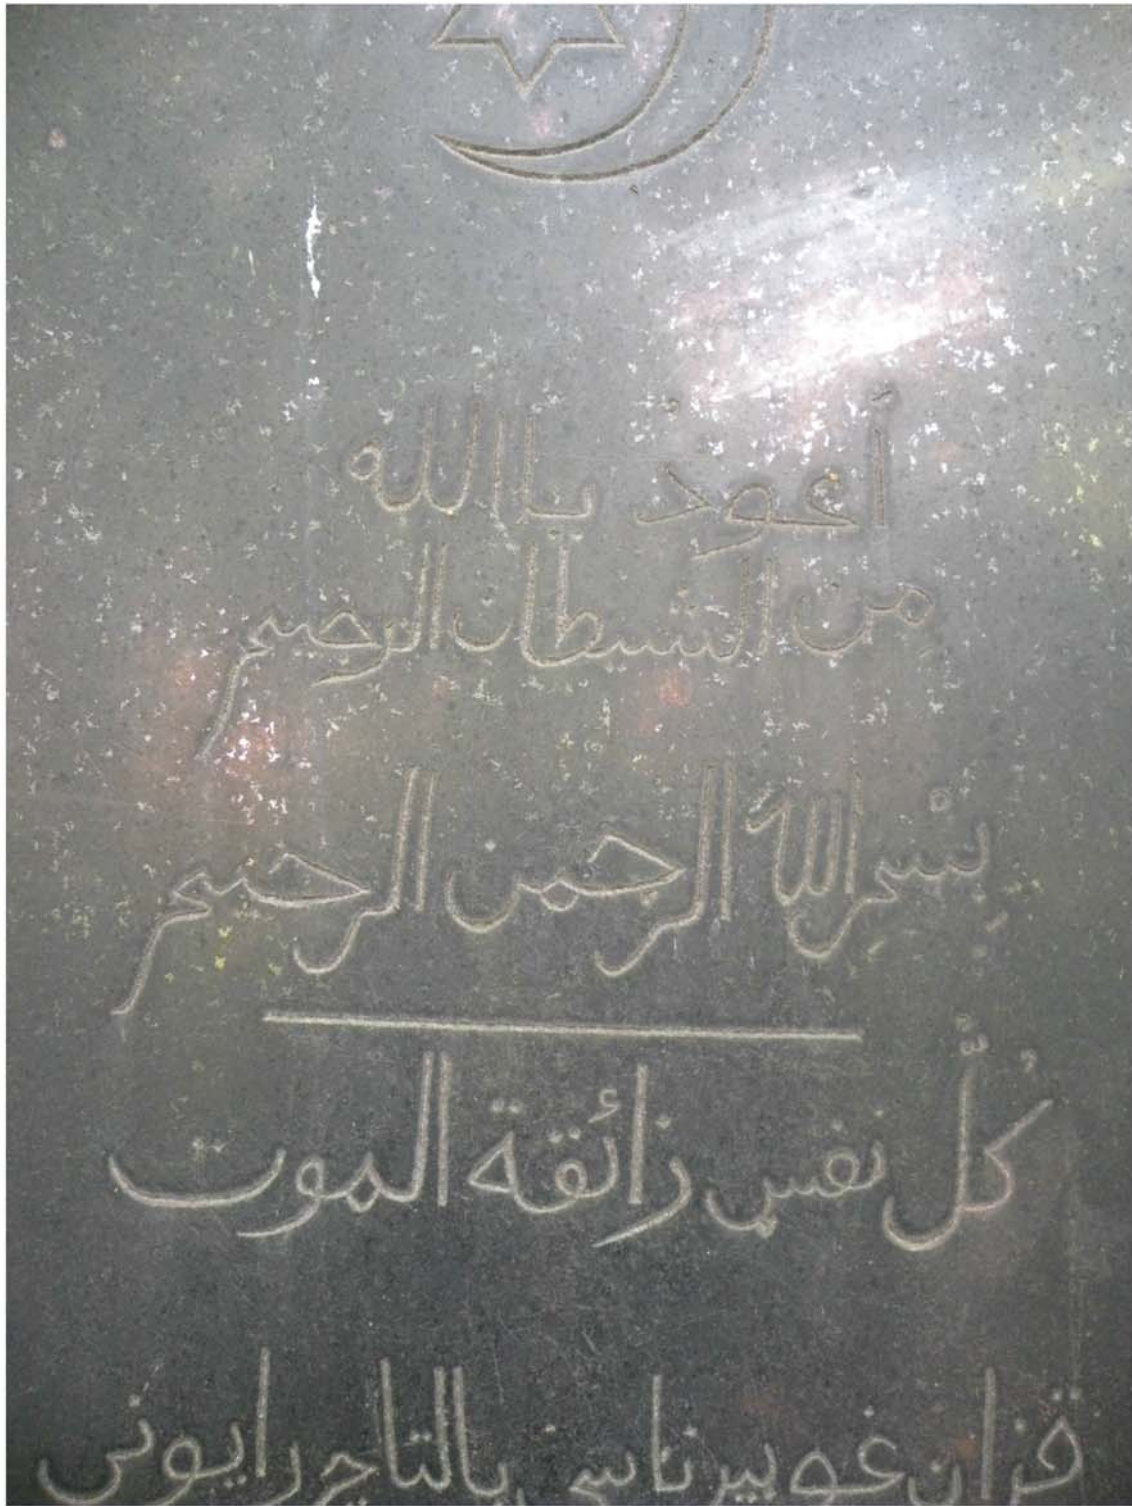 أعوذ باالله
مِن الشيطان الرجيم
بِسْم اللهِ الرحمن الرحيم
كُلّ نفس زائقة الموت
قزان غوبيرناسى بالتاج رايونى